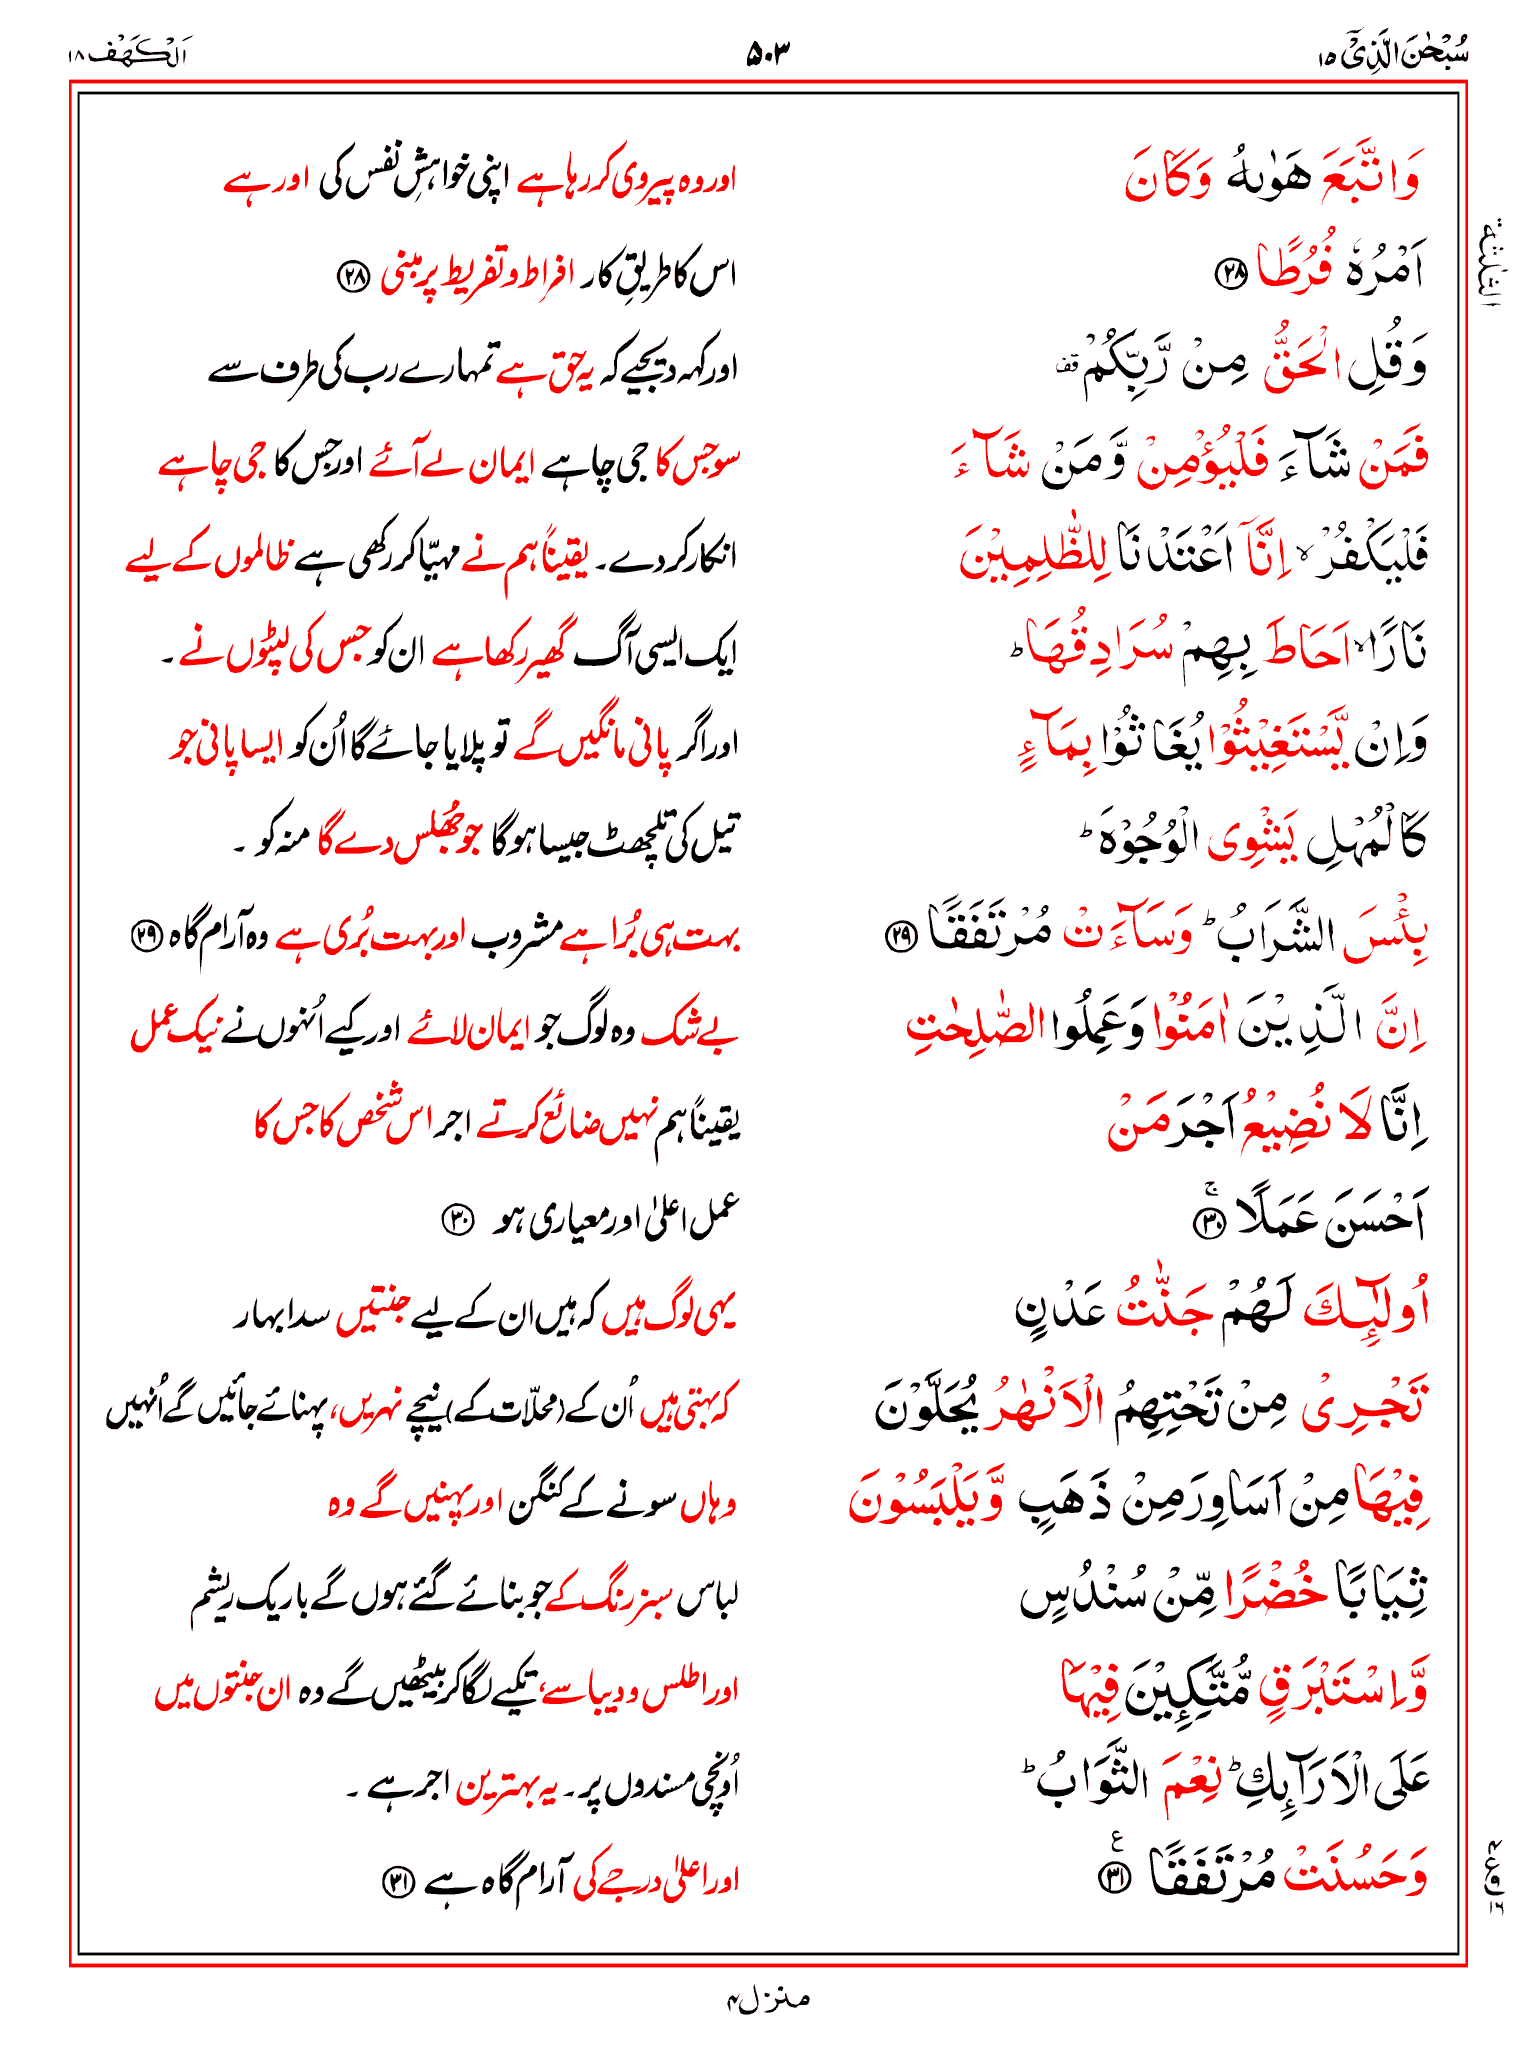 سُبْحٰنَ الَّذِیْۤ ۱۵
۵۰۳
اَلْكَهْف ۱۸
وَاتَّبَعَ هَوٰىهُ وَكَانَ
اور وہ پیروی کر رہا ہے اپنی خواہشِ نفس کی اور ہے
اَمْرُهٗ فُرُطًا ۲۸
اس کا طریقِ کار افراط و تفریط پر مبنی ۲۸
وَقُلِ الْحَقُّ مِنْ رَّبِّكُمْ قف
اور کہہ دیجیے کہ یہ حق ہے تمہارے رب کی طرف سے
فَمَنْ شَآءَ فَلْيُؤْمِنْ وَّمَنْ شَآءَ
سو جس کا جی چاہے ایمان لے آئے اور جس کا جی چاہے
فَلْيَكْفُرْ ۙ اِنَّاۤ اَعْتَدْنَا لِلظّٰلِمِيْنَ
انکار کر دے۔ یقیناً ہم نے مہیّا کر رکھی ہے ظالموں کے لیے
نَارًا ۙ اَحَاطَ بِهِمْ سُرَادِقُهَا ؕ
ایک ایسی آگ گھیر رکھا ہے ان کو جس کی لپٹوں نے ۔
وَاِنْ يَّسْتَغِيْثُوْا يُغَاثُوْا بِمَآءٍ
اور اگر پانی مانگیں گے تو پلایا جائے گا اُن کو ایسا پانی جو
كَالْمُهْلِ يَشْوِى الْوُجُوْهَ ؕ
تیل کی تلچھٹ جیسا ہوگا جو جُھلس دے گا منہ کو ۔
بِئْسَ الشَّرَابُ ؕ وَسَآءَتْ مُرْتَفَقًا ۲۹
بہت ہی بُرا ہے مشروب اور بہت بُری ہے وہ آرام گاہ ۲۹
اِنَّ الَّذِيْنَ اٰمَنُوْا وَعَمِلُوا الصّٰلِحٰتِ
بے شک وہ لوگ جو ایمان لائے اور کیے اُنہوں نے نیک عمل
اِنَّا لَا نُضِيْعُ اَجْرَ مَنْ
یقیناً ہم نہیں ضائع کرتے اجر اس شخص کا جس کا
اَحْسَنَ عَمَلًا ۚ ۳۰
عمل اعلیٰ اور معیاری ہو ۳۰
اُولٰٓئِكَ لَهُمْ جَنّٰتُ عَدْنٍ
یہی لوگ ہیں کہ ہیں ان کے لیے جنتیں سدا بہار
تَجْرِىْ مِنْ تَحْتِهِمُ الْاَنْهٰرُ يُحَلَّوْنَ
کہ بہتی ہیں اُن کے (محلّات کے) نیچے نہریں، پہنائے جائیں گے اُنہیں
فِيْهَا مِنْ اَسَاوِرَ مِنْ ذَهَبٍ وَّيَلْبَسُوْنَ
وہاں سونے کے کنگن اور پہنیں گے وہ
ثِيَابًا خُضْرًا مِّنْ سُنْدُسٍ
لباس سبز رنگ کے جو بنائے گئے ہوں گے باریک ریشم
وَّاِسْتَبْرَقٍ مُّتَّكِـِٕيْنَ فِيْهَا
اور اطلس و دیبا سے، تکیے لگا کر بیٹھیں گے وہ ان جنتوں میں
عَلَى الْاَرَآىِٕكِ ؕ نِعْمَ الثَّوَابُ ؕ
اُونچی مسندوں پر۔ یہ بہترین اجر ہے ۔
وَحَسُنَتْ مُرْتَفَقًا ۳۱ ع
اور اعلیٰ درجے کی آرام گاہ ہے ۳۱
الثلثة
منزل ۴